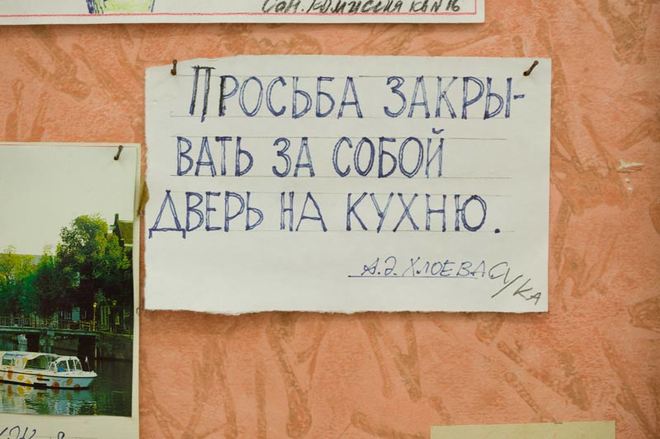 Сан. комиссия кв №16
ПРОСЬБА ЗАКРЫ-
ВАТЬ ЗА СОБОЙ
ДВЕРЬ НА КУХНЮ.
А.Э. ХЛОЕВА СУКА